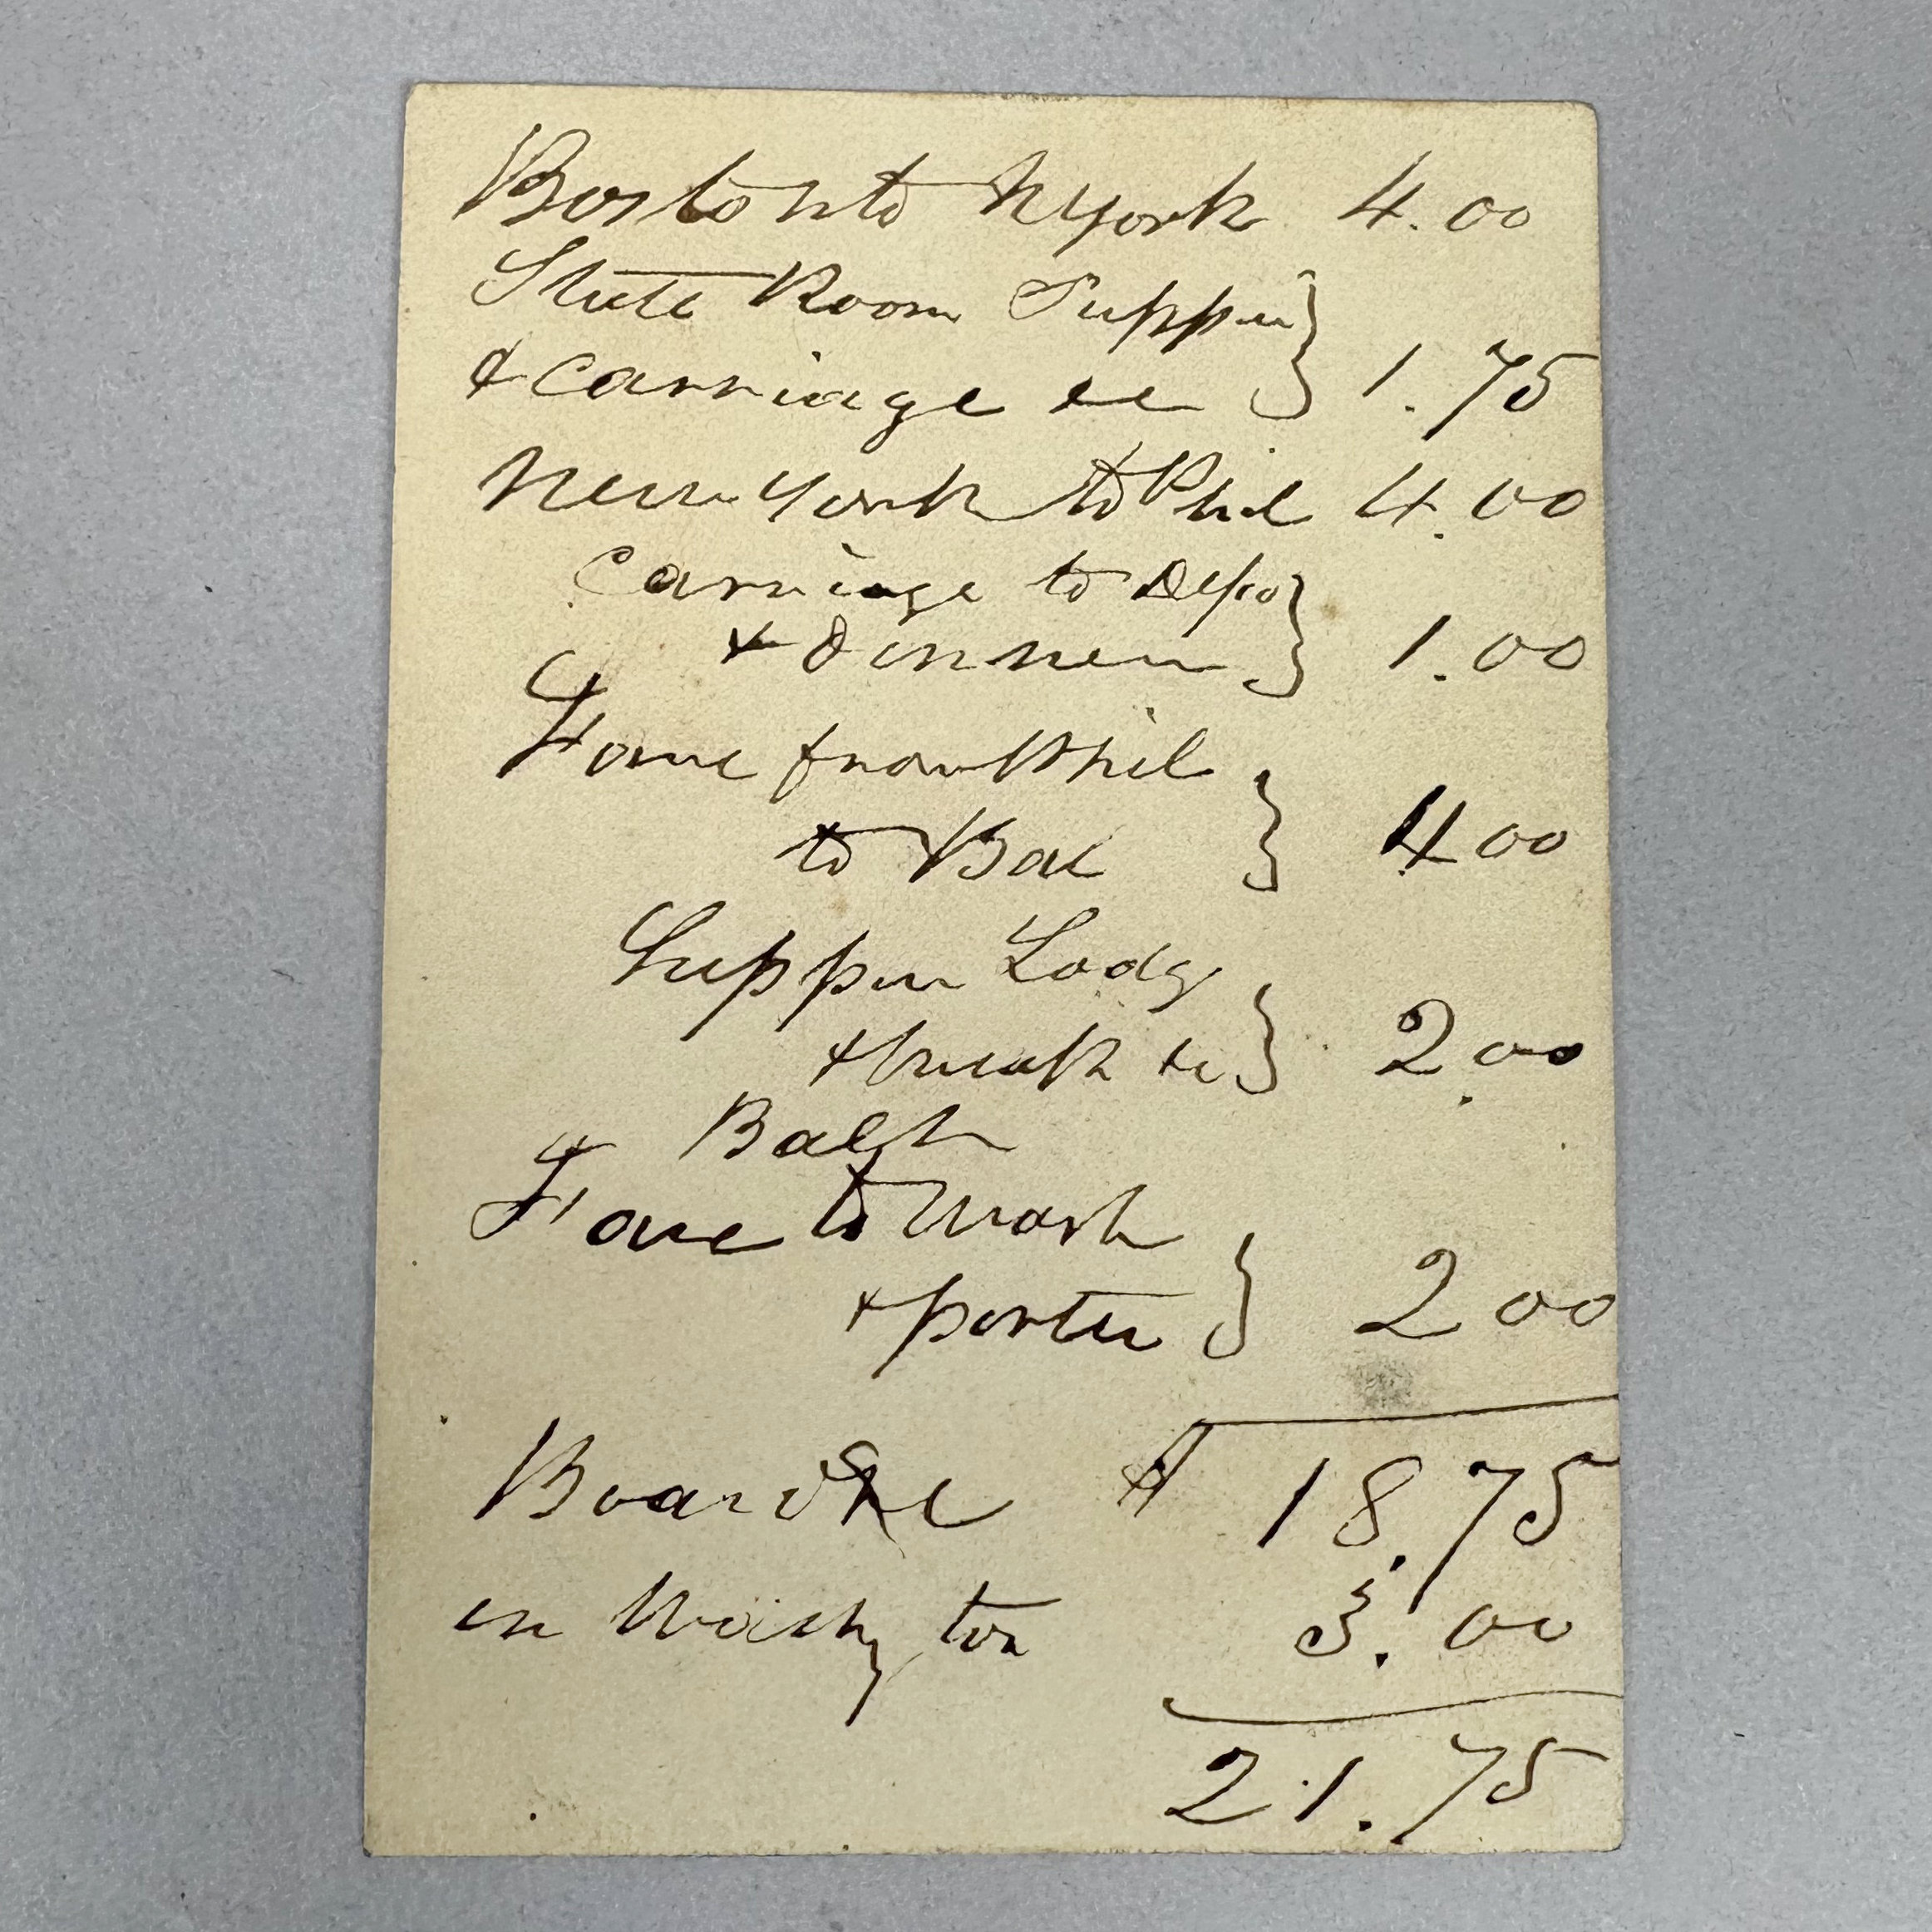 Boston to N York 4.00
State Room Supper
& Carriage &c } 1.75
New York to Phil 4.00
Carriage to Depo
& Dinner } 1.00
Fare from Phil
to Bal } 4.00
Supper Lodg
& break &c } 2.00
Fare to Wash
& porter } 2 00
Board &c $ 18.75
in Washgton 3.00
21.75